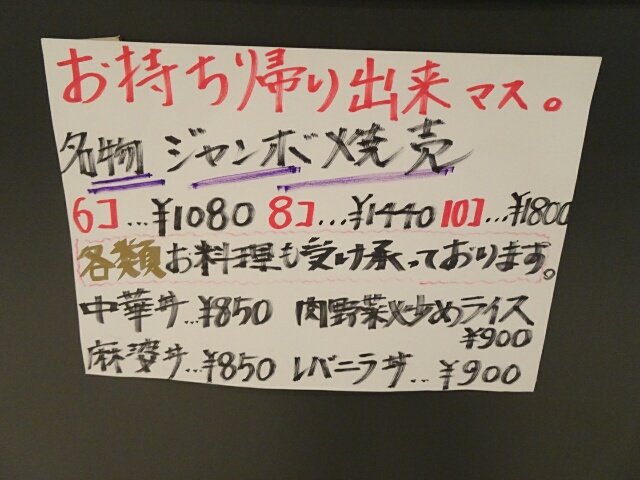 お持ち帰り出来マス。
名物 ジャンボ焼売
6コ…¥1080 8コ…¥1440 10コ…¥1800
各類お料理も受け承っております。
中華丼…¥850 肉野菜炒めライス
¥900
麻婆丼…¥850 レバニラ丼…¥900